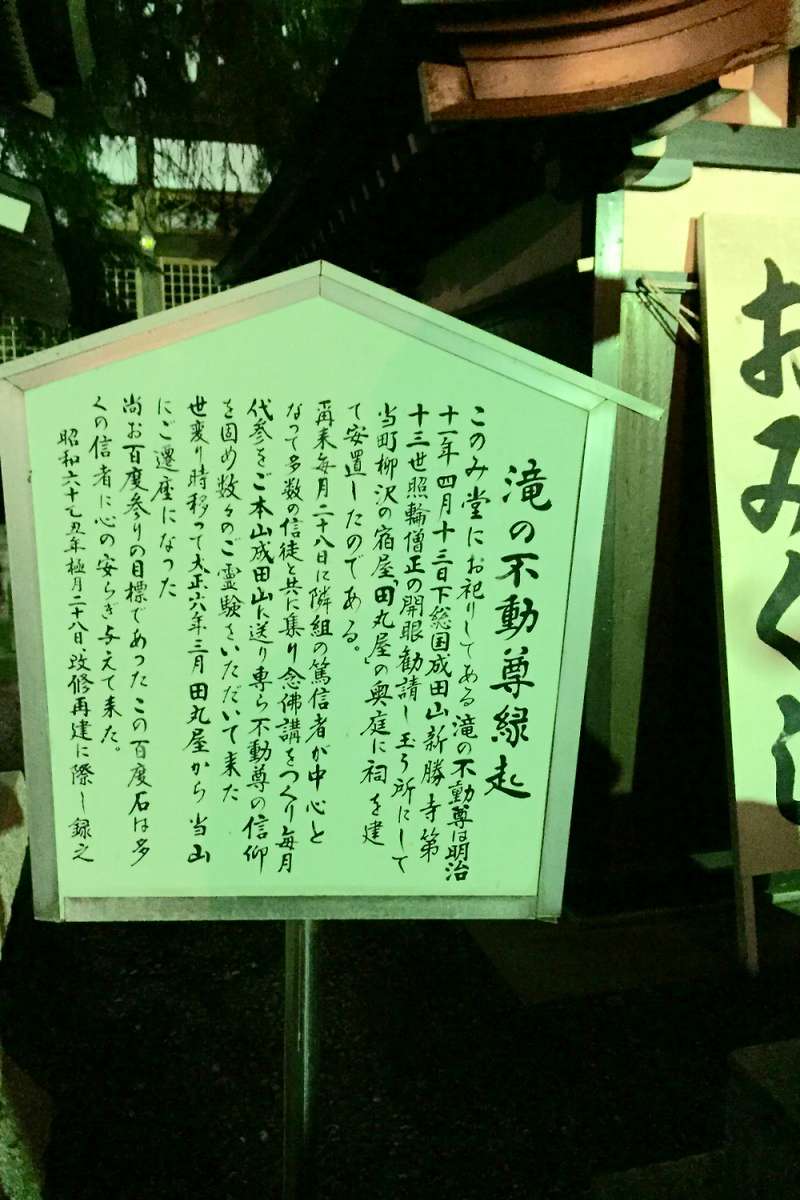 滝の不動尊縁起
このみ堂にお祀りしてある滝の不動尊は明治
十一年四月十三日下総国成田山新勝寺第
十三世照輪僧正の開眼勧請し玉う所にして
当町柳沢の宿屋「田丸屋」の奥庭に祠を建
て安置したのである。
再来毎月二十八日に隣組の篤信者が中心と
なって多数の信徒と共に集り念佛講をつくり毎月
代参をご本山成田山に送り専ら不動尊の信仰
を固め数々のご霊験をいただいて来た
世変り時移って大正六年三月田丸屋から当山
にご遷座になった
尚お百度参りの目標であったこの百度石は多
くの信者に心の安らぎ与えて来た。
昭和六十乙丑年極月二十八日、改修再建に際し録之
おみくじ